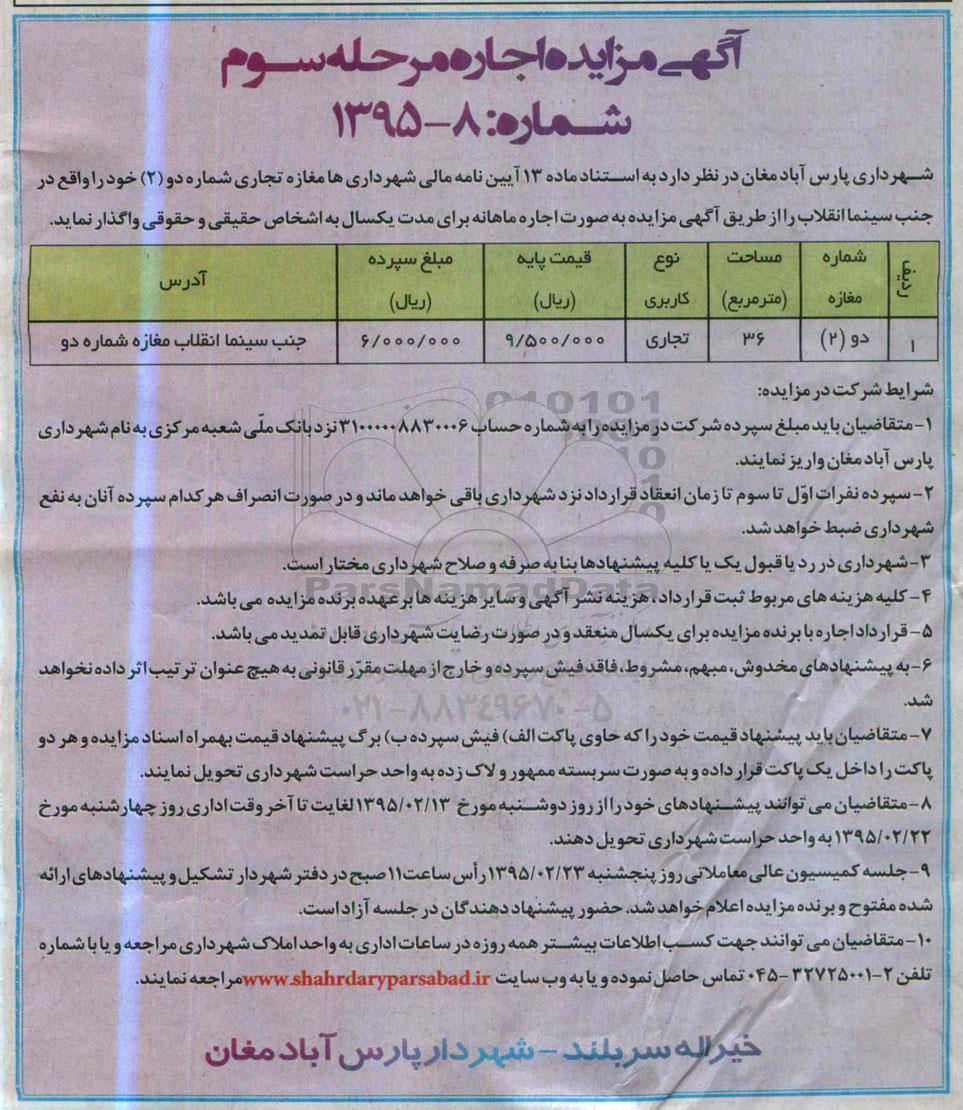 آگهی مزایده اجاره مرحله سوم
شماره: ۸-۱۳۹۵
شهرداری پارس آباد مغان در نظر دارد به استناد ماده ۱۳ آیین نامه مالی شهرداری ها مغازه تجاری شماره دو (۲) خود را واقع در
جنب سینما انقلاب را از طریق آگهی مزایده به صورت اجاره ماهانه برای مدت یکسال به اشخاص حقیقی و حقوقی واگذار نماید.
ردیف | شماره مغازه | مساحت (مترمربع) | نوع کاربری | قیمت پایه (ریال) | مبلغ سپرده (ریال) | آدرس
۱ | دو (۲) | ۳۶ | تجاری | ۹/۵۰۰/۰۰۰ | ۶/۰۰۰/۰۰۰ | جنب سینما انقلاب مغازه شماره دو
شرایط شرکت در مزایده:
۱- متقاضیان باید مبلغ سپرده شرکت در مزایده را به شماره حساب ۳۱۰۰۰۰۰۸۸۳۰۰۰۶ نزد بانک ملّی شعبه مرکزی به نام شهرداری
پارس آباد مغان واریز نمایند.
۲- سپرده نفرات اوّل تا سوم تا زمان انعقاد قرارداد نزد شهرداری باقی خواهد ماند و در صورت انصراف هر کدام سپرده آنان به نفع
شهرداری ضبط خواهد شد.
۳- شهرداری در رد یا قبول یک یا کلیه پیشنهادها بنا به صرفه و صلاح شهرداری مختار است.
۴- کلیه هزینه های مربوط ثبت قرارداد، هزینه نشر آگهی و سایر هزینه ها بر عهده برنده مزایده می باشد.
۵- قرارداد اجاره با برنده مزایده برای یکسال منعقد و در صورت رضایت شهرداری قابل تمدید می باشد.
۶- به پیشنهادهای مخدوش، مبهم، مشروط، فاقد فیش سپرده و خارج از مهلت مقرّر قانونی به هیچ عنوان ترتیب اثر داده نخواهد
شد.
۷- متقاضیان باید پیشنهاد قیمت خود را که حاوی پاکت الف) فیش سپرده ب) برگ پیشنهاد قیمت بهمراه اسناد مزایده و هر دو
پاکت را داخل یک پاکت قرار داده و به صورت سربسته ممهور و لاک زده به واحد حراست شهرداری تحویل نمایند.
۸- متقاضیان می توانند پیشنهادهای خود را از روز دوشنبه مورخ ۱۳۹۵/۰۲/۱۳ لغایت تا آخر وقت اداری روز چهارشنبه مورخ
۱۳۹۵/۰۲/۲۲ به واحد حراست شهرداری تحویل دهند.
۹- جلسه کمیسیون عالی معاملاتی روز پنجشنبه ۱۳۹۵/۰۲/۲۳ رأس ساعت ۱۱ صبح در دفتر شهردار تشکیل و پیشنهادهای ارائه
شده مفتوح و برنده مزایده اعلام خواهد شد. حضور پیشنهاد دهندگان در جلسه آزاد است.
۱۰- متقاضیان می توانند جهت کسب اطلاعات بیشتر همه روزه در ساعات اداری به واحد املاک شهرداری مراجعه و یا با شماره
تلفن ۲-۳۲۷۲۵۰۰۱-۰۴۵ تماس حاصل نموده و یا به وب سایت www.shahrdaryparsabad.ir مراجعه نمایند.
خیراله سربلند - شهردار پارس آباد مغان
ParsNamadData
۰۲۱-۸۸۳۴۹۶۷۰-۵